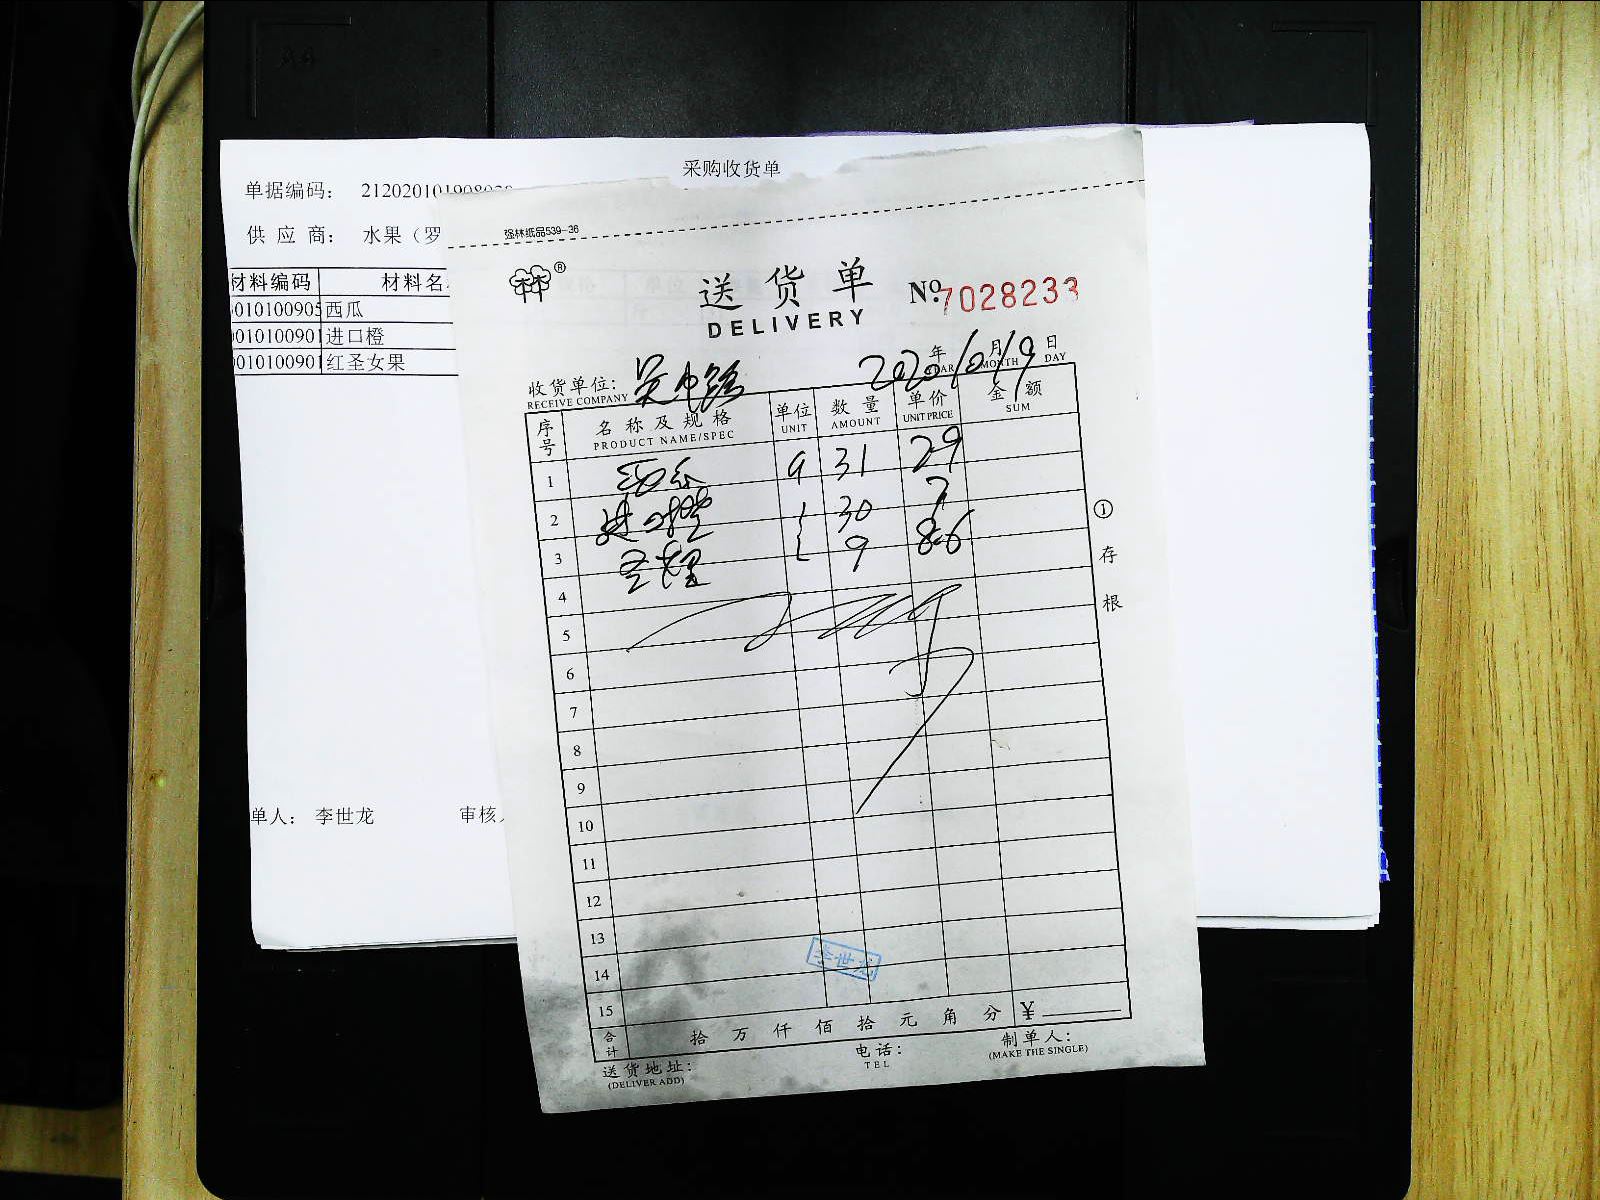 采购收货单
单据编码： 212020101908028
供 应 商： 水果（罗
材料编码 材料名
010100905 西瓜
010100901 进口橙
010100901 红圣女果
单人： 李世龙 审核
强林纸品539-36
®
送货单 №7028233
DELIVERY
2020年10月19日
YEAR MONTH DAY
收货单位：吴中路
RECEIVE COMPANY
序号 名称及规格 单位 数量 单价 金额
PRODUCT NAME/SPEC UNIT AMOUNT UNIT PRICE SUM
1 西瓜 31 2.9
2 进口橙 30 7
3 圣女果 9 8.6
4
5
6
7
8
9
10
11
12
13
14
15
①存根
李世龙
合计 拾 万 仟 佰 拾 元 角 分 ¥
送货地址： 电话： 制单人：
(DELIVER ADD) TEL (MAKE THE SINGLE)